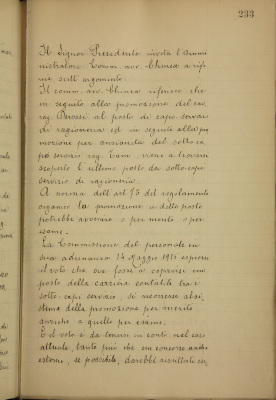 233
Il Signor Presidente invita l'Ammi
nistratore Comm. avv. Chinea a rife
rire sull'argomento.
Il comm. avv. Chinea riferisce che
in seguito alla promozione del cav.
rag. Perossi al posto di capo servizi
di ragioneria ed in seguito alla pro
mozione per anzianità del sotto ca
po servizio rag. viene a trovarsi
scoperto l'ultimo posto di sotto capo
servizio di ragioneria
A norma dell'art. 75 del regolamento
organico la promozione a detto posto
potrebbe avvenire o per merito o per
esame.
La Commissione del personale in
sua adunanza 14 Maggio 1915 espresse
il voto che ove fosse a coprirsi un
posto della carriera contabile tra i
sotto-capi servizi, si ricorresse al si
stema della promozione per merito
anziché a quello per esame.
E il voto è da tenersi in conto nel caso
attuale, tanto più che un concorso anche
esterno, se possibile, darebbe risultati in